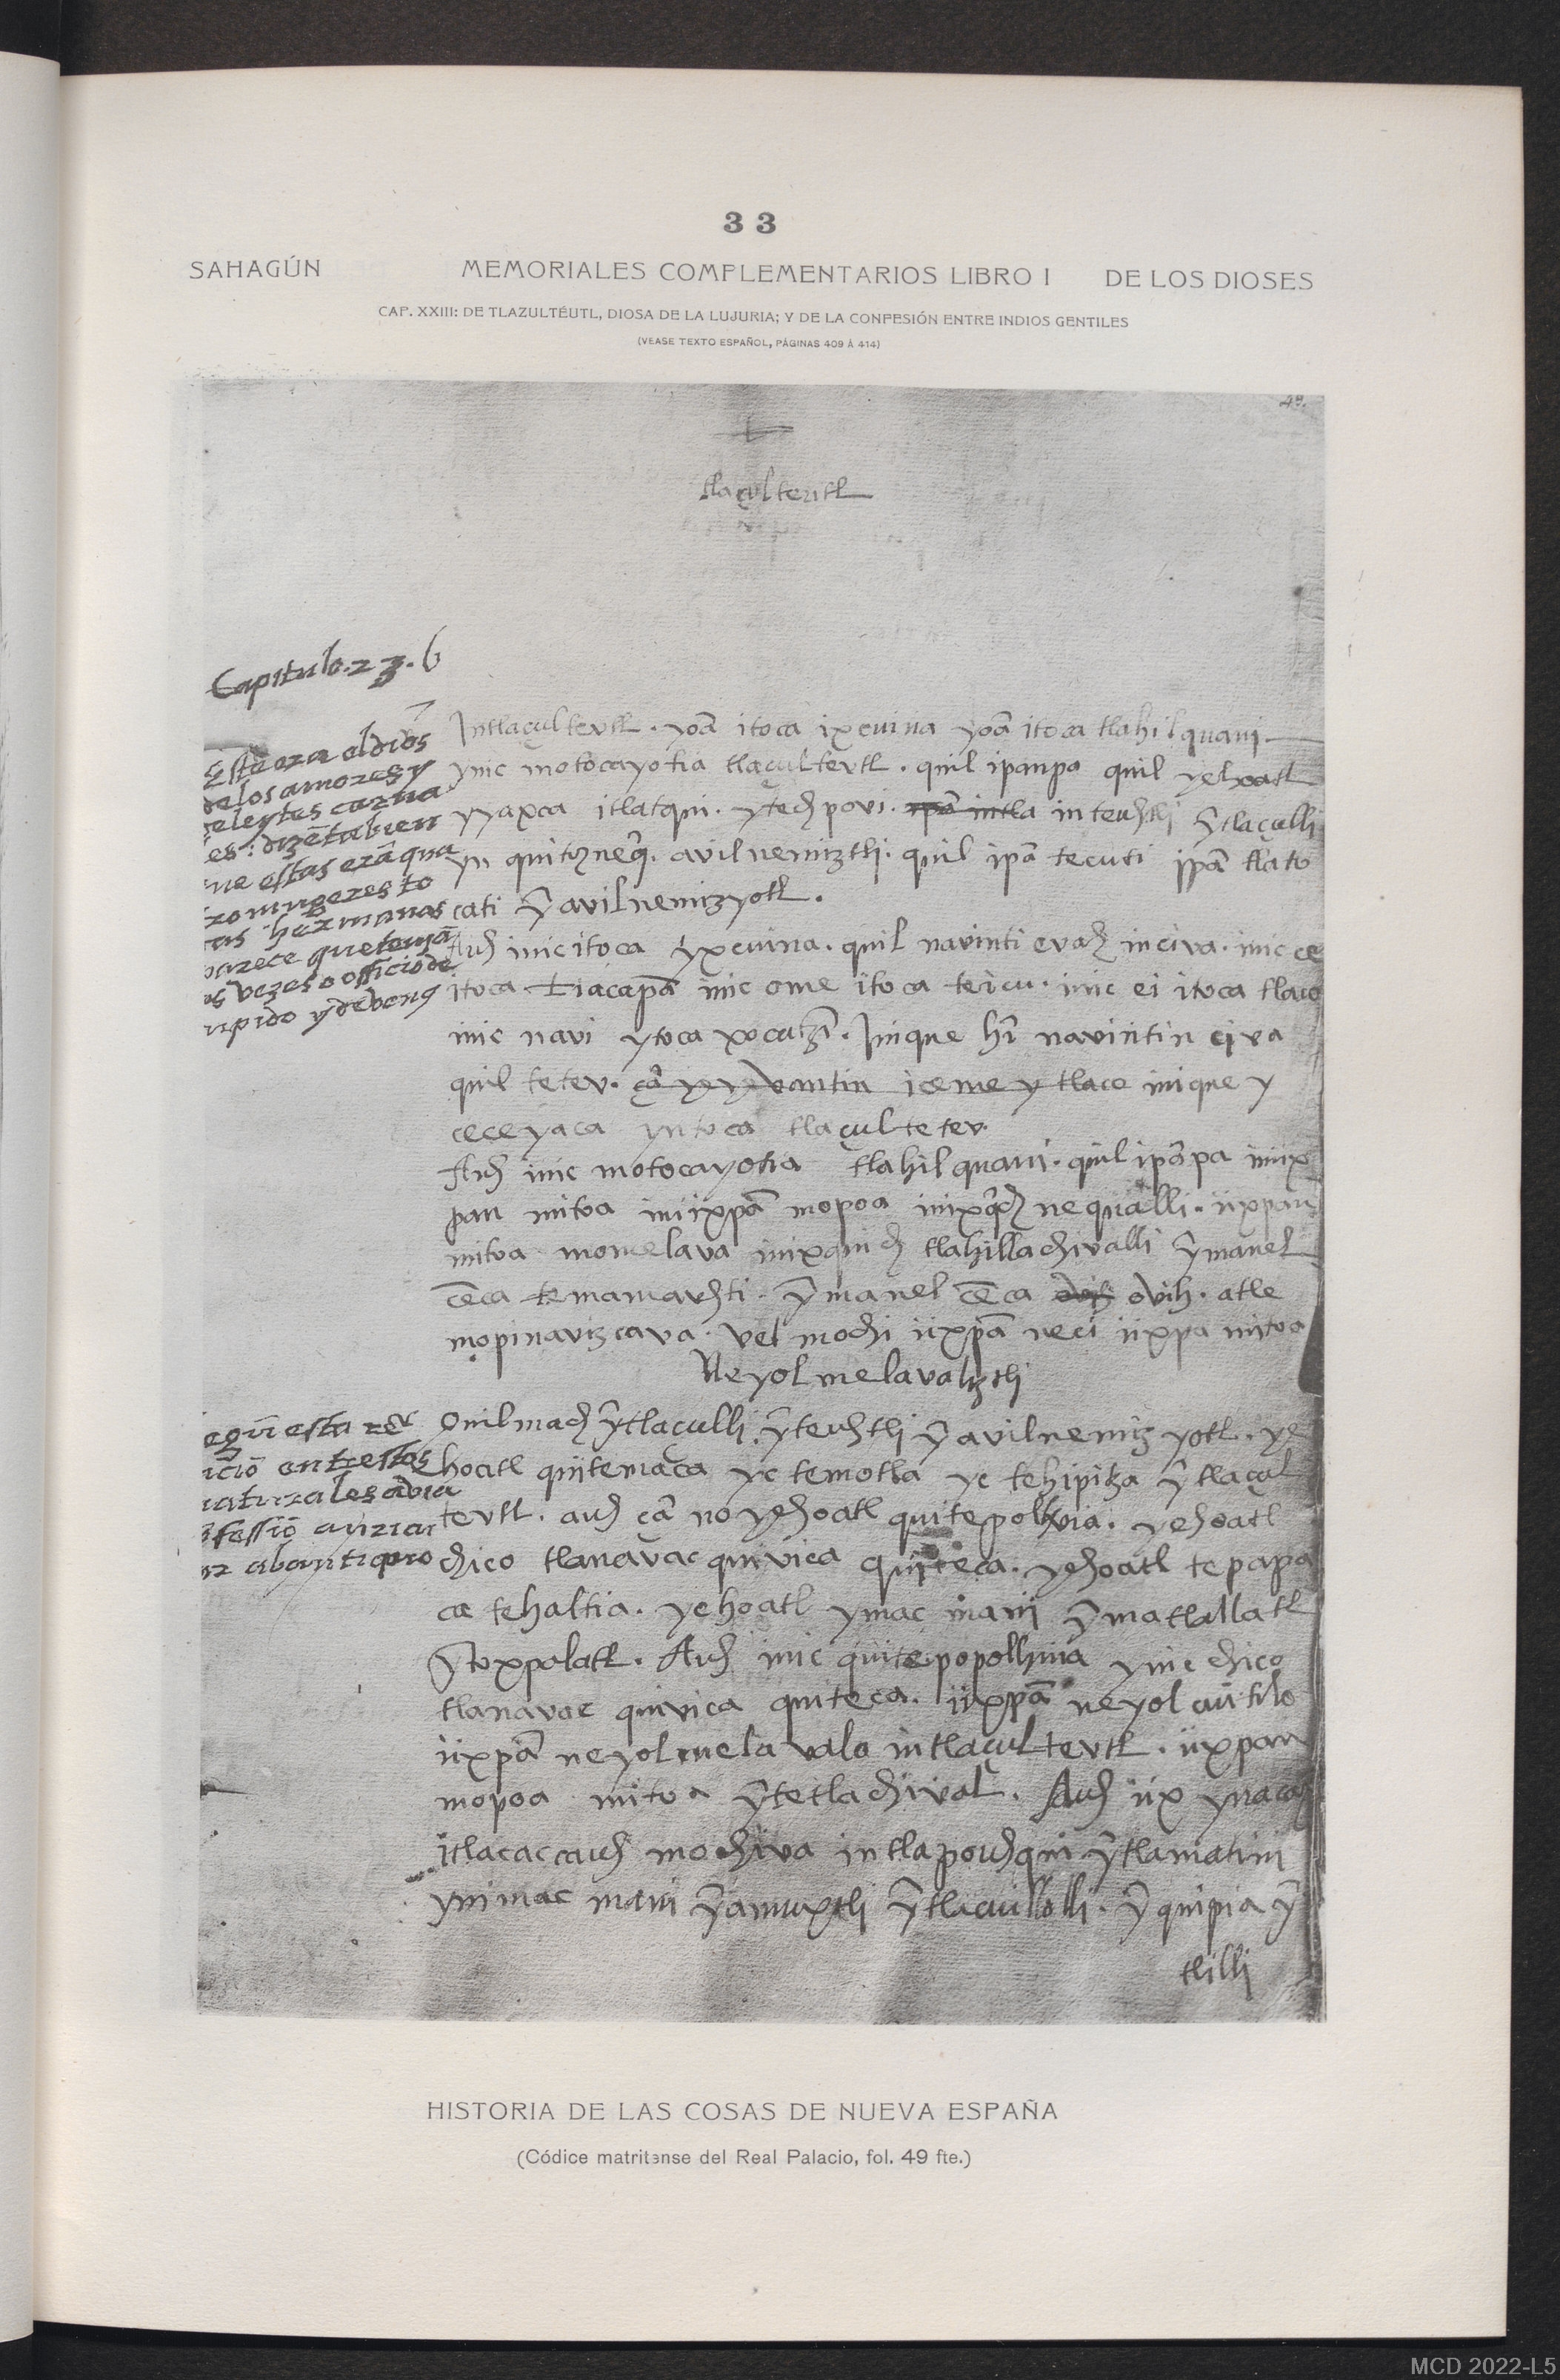 33
SAHAGÚN MEMORIALES COMPLEMENTARIOS LIBRO I DE LOS DIOSES
CAP. XXIII: DE TLAZULTÉUTL, DIOSA DE LA LUJURIA; Y DE LA CONFESIÓN ENTRE INDIOS GENTILES
(VEASE TEXTO ESPAÑOL, PÁGINAS 409 Á 414)
49.
tlaçulteutl
Capitulo. 23. 6
Este era el dios
de los amores y
deleytes carna
les: dizē tābien
que estas erā qua
tro mugeres to
das hermanas
parece que teniā
las vezes o officio de
cupido y de venꝰ
Intlaçulteutl. yoā itoca ixcuina yoā itoca tlahilquani
ynic motocayotia tlaçulteutl. quil ipanpa quil yehoatl
yyaxca itlatqui. ytech povi. ipā intla in teuhtli ȳtlaçulli
yn quitozneq̄. avilnemiztli. quil ipā tecuti ipā tlato
cati ȳ avilnemizyotl.
Auh inic itoca yxcuina. quil navinti evah in civa. inic ce
itoca tiacapā inic ome itoca teicu. inic ei itoca tlaco
inic navi ytoca xocutzī. Inique hī navintin civa
quil teteu. çā yeyvantin iceme y tlaco inique y
ceceyaca yntoca tlaçulteteu
Auh inic motocayotia tlahilquani. quil ipāpa iniix
pan mitoa iniixpā mopoa inixq̄ch nequalli. iixpan
mitoa momelava inixquich tlahillachivalli ȳmanel
cēca temamauhti. ȳ manel cēca ovih ovih. atle
mopinavizcava. vel mochi iixpā neci iixpa mitoa
Neyolmelavaliztli
aqui esta re
laciō entre estos
naturales avia
cōfessiō auricu
lar ab antiquo
Quilmach ȳtlaçulli. ȳteuhtli ȳ avilnemizyotl. ye
hoatl quitemaca yc temotla yc tehipitza ȳ tlaçul
teutl. auh çā no yehoatl quitepolhvia. yehoatl
chico tlanavac quivica quiteca. yehoatl tepapa
ca tehaltia. yehoatl ymac mani ȳ matlallatl
ȳ toxpalatl. Auh inic quitepopolhuia ynic chico
tlanavac quivica quiteca. iixpā neyolcuitilo
iixpā neyolmelavalo intlaçulteutl. iixpan
mopoa mitoa ȳtetlachival. Auh iix ynacaz
itlacaccauh mochiva in tlapouhqui ȳtlamatini
ynimac mani ȳamuxtli ȳtlacuilolli. ȳ quipia ȳ
tlilli
HISTORIA DE LAS COSAS DE NUEVA ESPAÑA
(Códice matritense del Real Palacio, fol. 49 fte.)
MCD 2022-L5